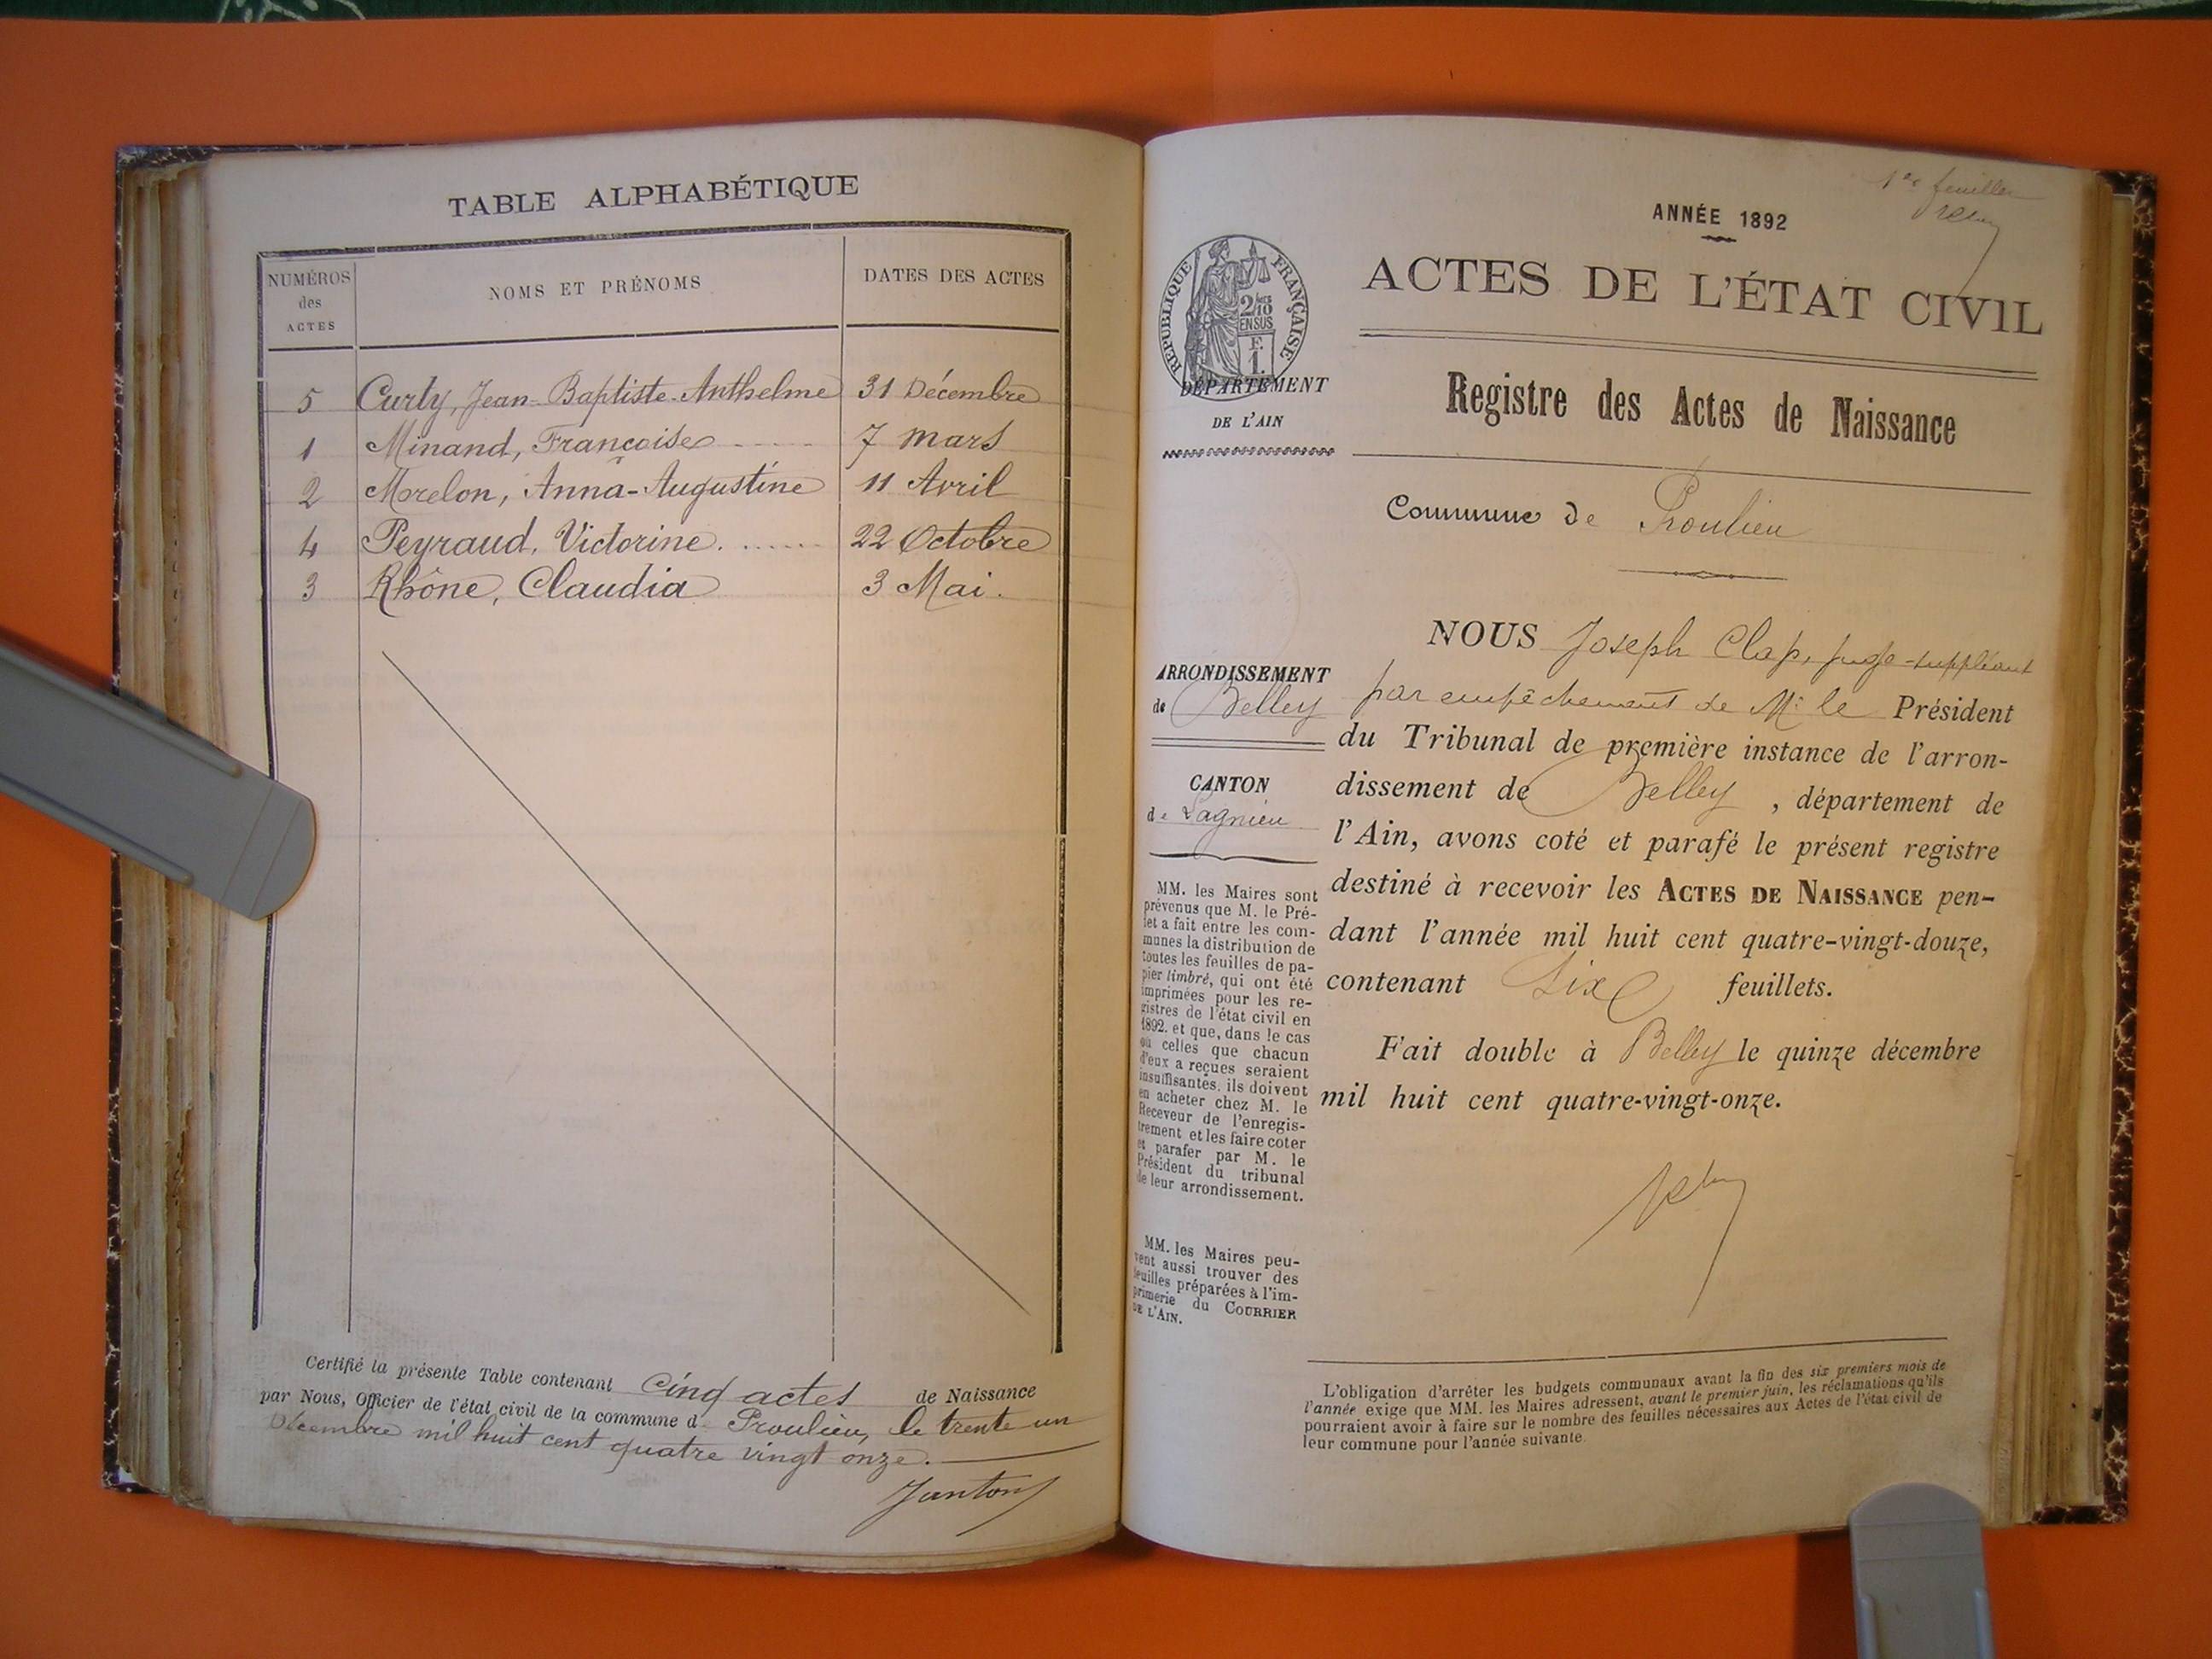 TABLE ALPHABÉTIQUE
NUMÉROS des ACTES
NOMS ET PRÉNOMS
DATES DES ACTES
5 Curty, Jean-Baptiste-Anthelme 31 Décembre
1 Minand, Françoise 7 mars
2 Morelon, Anna-Augustine 11 Avril
4 Peyraud, Victorine. 22 Octobre
3 Rhône, Claudia 3 Mai.
Certifié la présente Table contenant cinq actes de Naissance
par Nous, Officier de l'état civil de la commune d Proulieu, le trente un
Décembre mil huit cent quatre vingt onze.
Janton
1er feuillet
ANNÉE 1892
ACTES DE L'ÉTAT CIVIL
RÉPUBLIQUE FRANÇAISE
2/10
EN SUS
F.
1.
DÉPARTEMENT
DE L'AIN
Registre des Actes de Naissance
Commune de Proulieu
ARRONDISSEMENT
de Belley
CANTON
de Lagnieu
MM. les Maires sont
prévenus que M. le Pré-
fet a fait entre les com-
munes la distribution de
toutes les feuilles de pa-
pier timbré, qui ont été
imprimées pour les re-
gistres de l'état civil en
1892. et que, dans le cas
où celles que chacun
d'eux a reçues seraient
insuffisantes, ils doivent
en acheter chez M. le
Receveur de l'enregis-
trement et les faire coter
et parafer par M. le
Président du tribunal
de leur arrondissement.
MM. les Maires peu-
vent aussi trouver des
feuilles préparées à l'im-
primerie du COURRIER
DE L'AIN.
NOUS Joseph Clap, juge-suppléant
par empêchement de Mr le Président
du Tribunal de première instance de l'arron-
dissement de Belley, département de
l'Ain, avons coté et parafé le présent registre
destiné à recevoir les ACTES DE NAISSANCE pen-
dant l'année mil huit cent quatre-vingt-douze,
contenant six feuillets.
Fait double à Belley le quinze décembre
mil huit cent quatre-vingt-onze.
L'obligation d'arrêter les budgets communaux avant la fin des six premiers mois de
l'année exige que MM. les Maires adressent, avant le premier juin, les réclamations qu'ils
pourraient avoir à faire sur le nombre des feuilles nécessaires aux Actes de l'état civil de
leur commune pour l'année suivante.